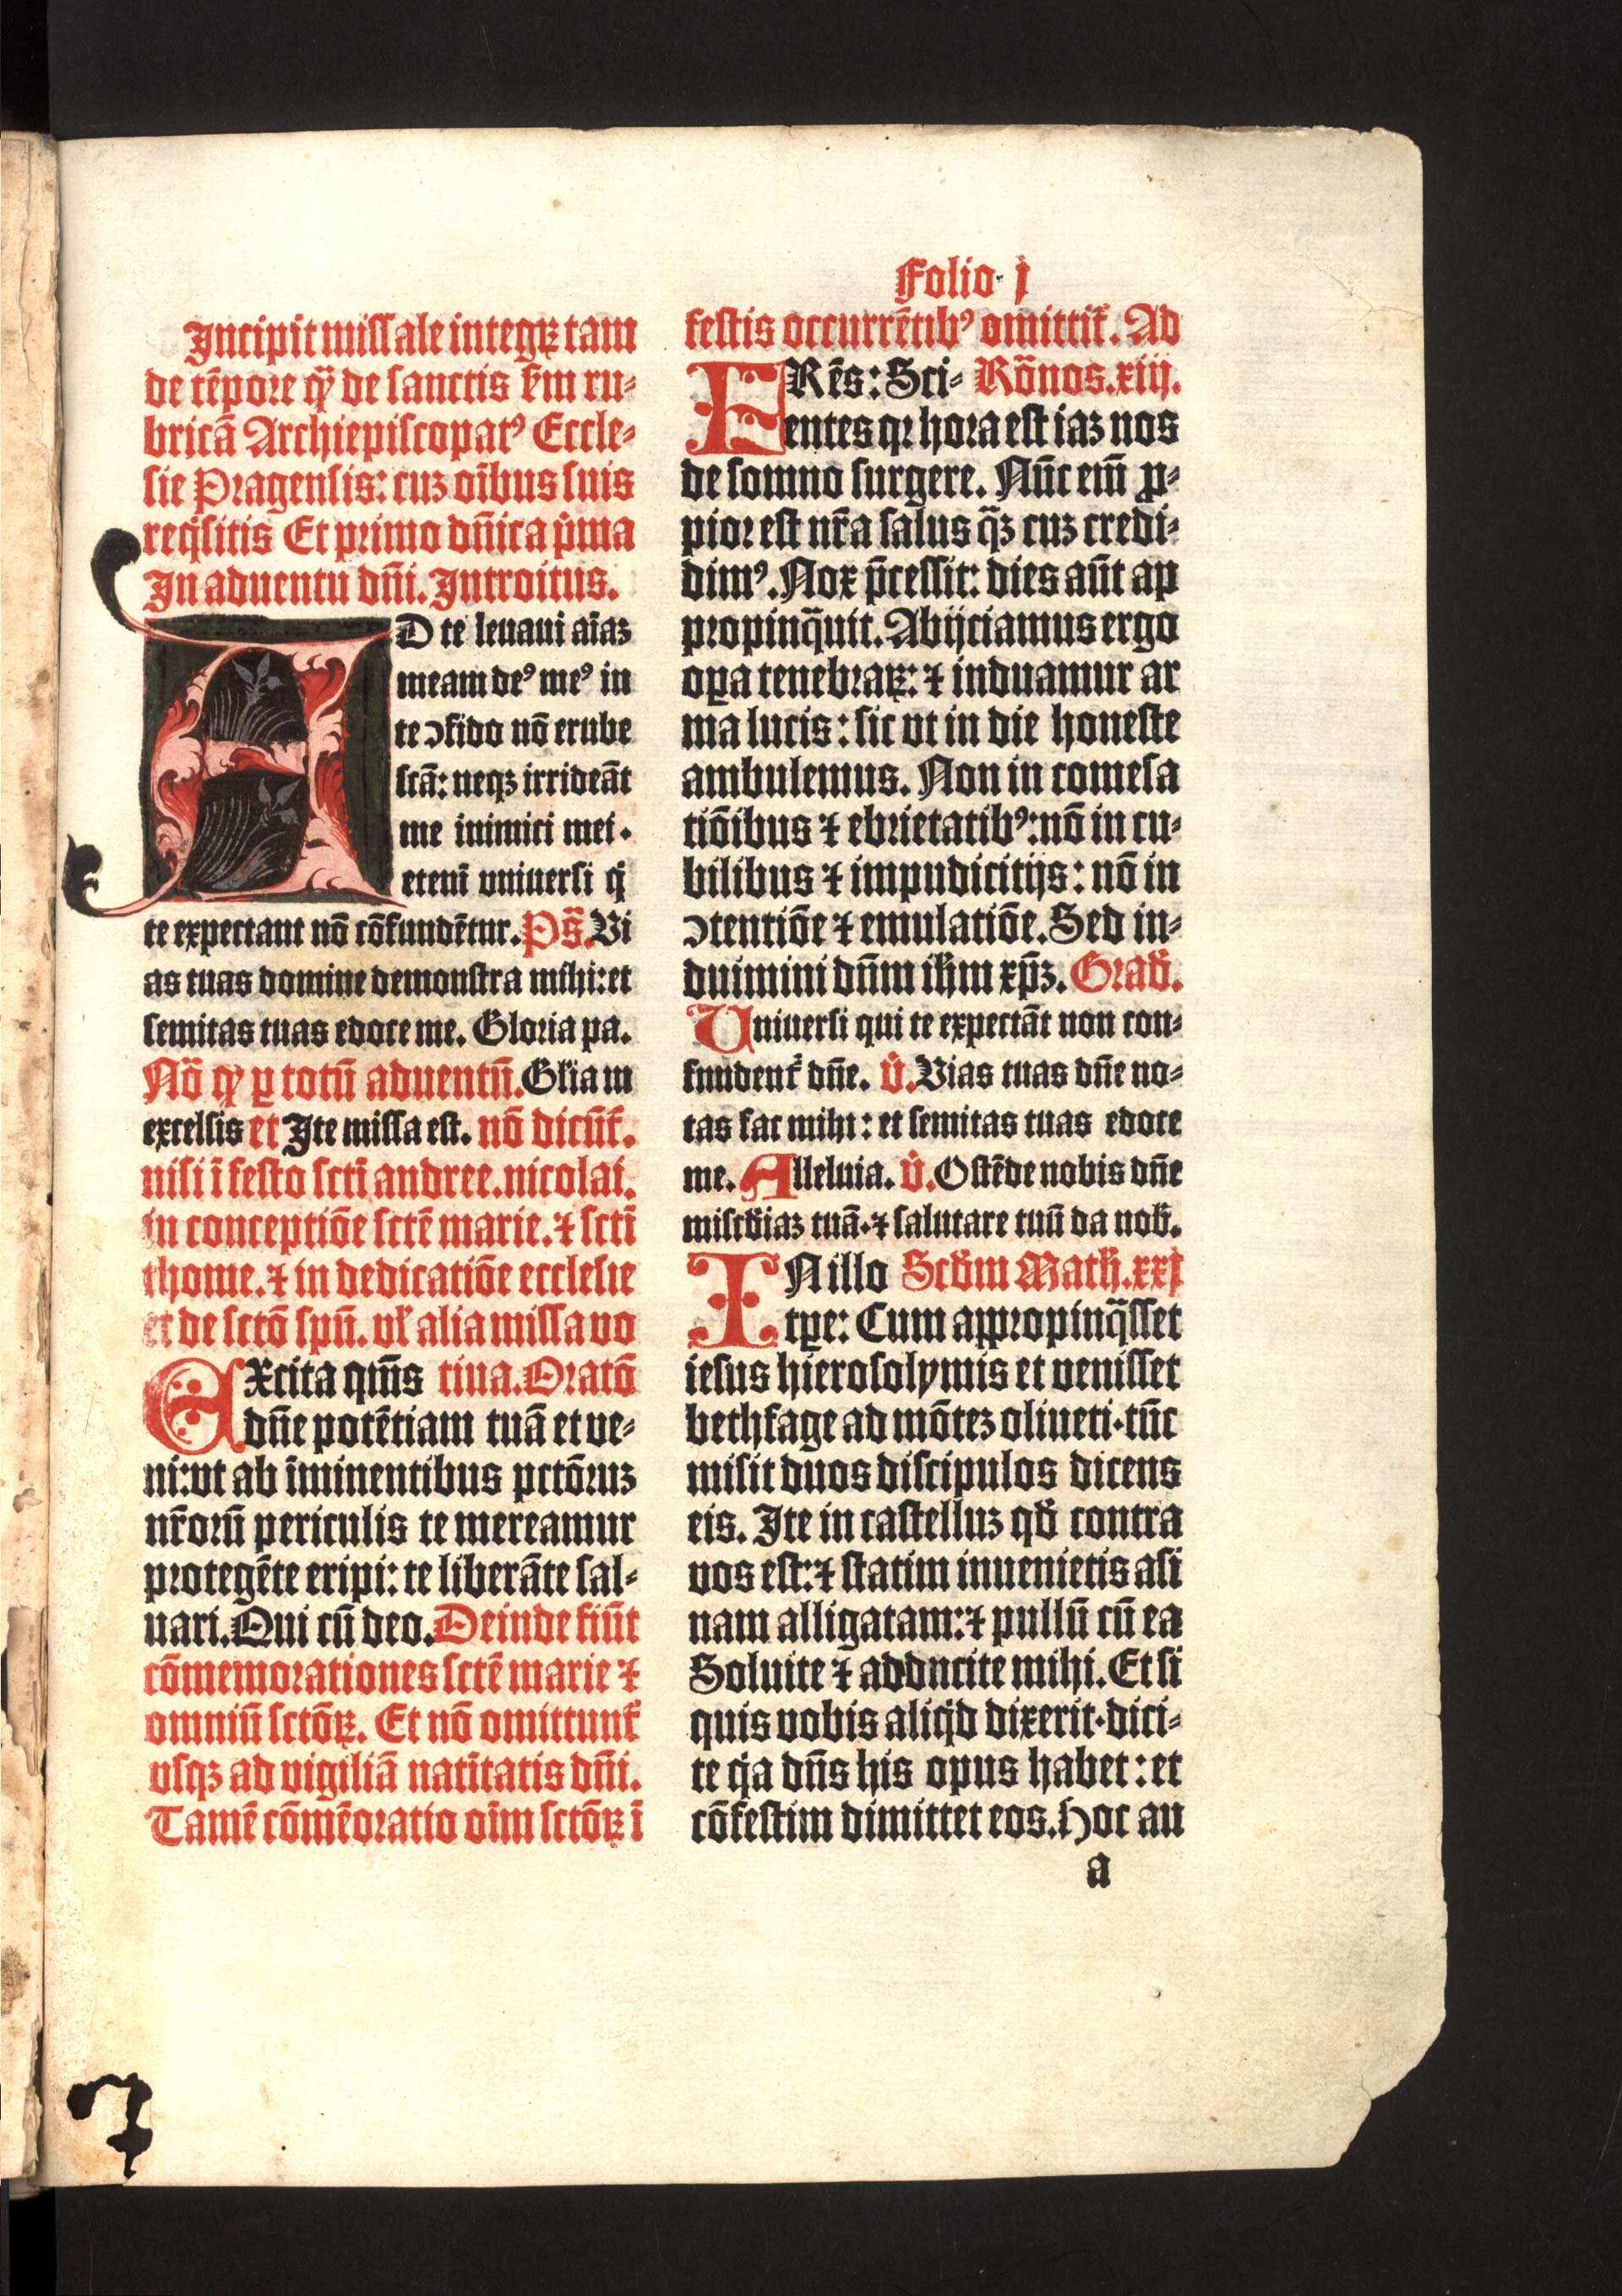 Folio· j
Incipit missale integrꝝ tam
de tẽpore qͣꝫ de sanctis ẜm ru⸗
bricã Archiepiscopatꝰ Eccle⸗
sie Pragensis: cuꝫ oĩbus suis
reqͥsitis Et primo dñica pͥma
In aduentu dñi. Introitus.
AD te leuaui aĩaꝫ
meam deꝰ meꝰ in
te ꝯfido nõ erube
scã: neqꝫ irrideãt
me inimici mei.
etenĩ vniuersi qͥ
te expectant nõ cõfundẽtur. Pš. Vi
as tuas domine demonstra mihi: et
semitas tuas edoce me. Gloria pa.
Nõ qꝫ ꝑ totũ aduentũ. Glia in
excelsis et Ite missa est. nõ dicũt̃.
nisi ĩ festo scti andree. nicolai.
in conceptiõe sctẽ marie. ⁊ scti
thome. ⁊ in dedicatiõe ecclesie
et de sctõ spũ. vl̃ alia missa vo
EXcita qm̃s tiua. Oratõ
dñe potẽtiam tuã et ve⸗
ni: vt ab ĩminentibus pctõruꝫ
nr̃orũ periculis te mereamur
protegẽte eripi: te liberãte sal⸗
uari. Qui cũ deo. Deinde fiũt
cõmemorationes sctẽ marie ⁊
omniũ sctõꝝ. Et nõ omittunt̃
vsqꝫ ad vigiliã natĩtatis dñi.
Tamẽ cõmẽoratio oĩm sctõꝝ ĩ
festis occurrẽtibꝰ omittit̃. Ad
FRẽs: Sci⸗ Rõnos. xiij.
entes qꝛ hora est iaꝫ nos
de somno surgere. Nũc em̃ ꝓ⸗
pior est nr̃a salus qͣꝫ cuꝫ credi⸗
dimꝰ. Nox p̃cessit: dies aũt ap
propinqͣuit. Abijciamus ergo
oꝑa tenebraꝝ: ⁊ induamur ar
ma lucis: sic vt in die honeste
ambulemus. Non in comesa
tiõibus ⁊ ebrietatibꝰ: nõ in cu⸗
bilibus ⁊ impudicitijs: nõ in
ꝯtentiõe ⁊ emulatiõe. Sed in⸗
duimini dñm ihm xp̃ꝫ. Grad̃.
Uniuersi qui te expectãt non con⸗
fundent̃ dñe. v̓. Vias tuas dñe no⸗
tas fac mihi: et semitas tuas edoce
me. Alleluia. v̓. Ostẽde nobis dñe
miscd̃iaꝫ tuã. ⁊ salutare tuũ da nob̃.
IN illo Scd̃m Math̃. xxj
tꝑe: Cum appropinqͣsset
iesus hierosolymis et venisset
bethfage ad mõteꝫ oliueti. tũc
misit duos discipulos dicens
eis. Ite in castelluꝫ qd̃ contra
vos est: ⁊ statim inuenietis asi
nam alligatam: ⁊ pullũ cũ ea
Soluite ⁊ adducite mihi. Et si
quis vobis aliqͥd dixerit. dici⸗
te qͥa dñs his opus habet: et
cõfestim dimittet eos. Hoc au
a